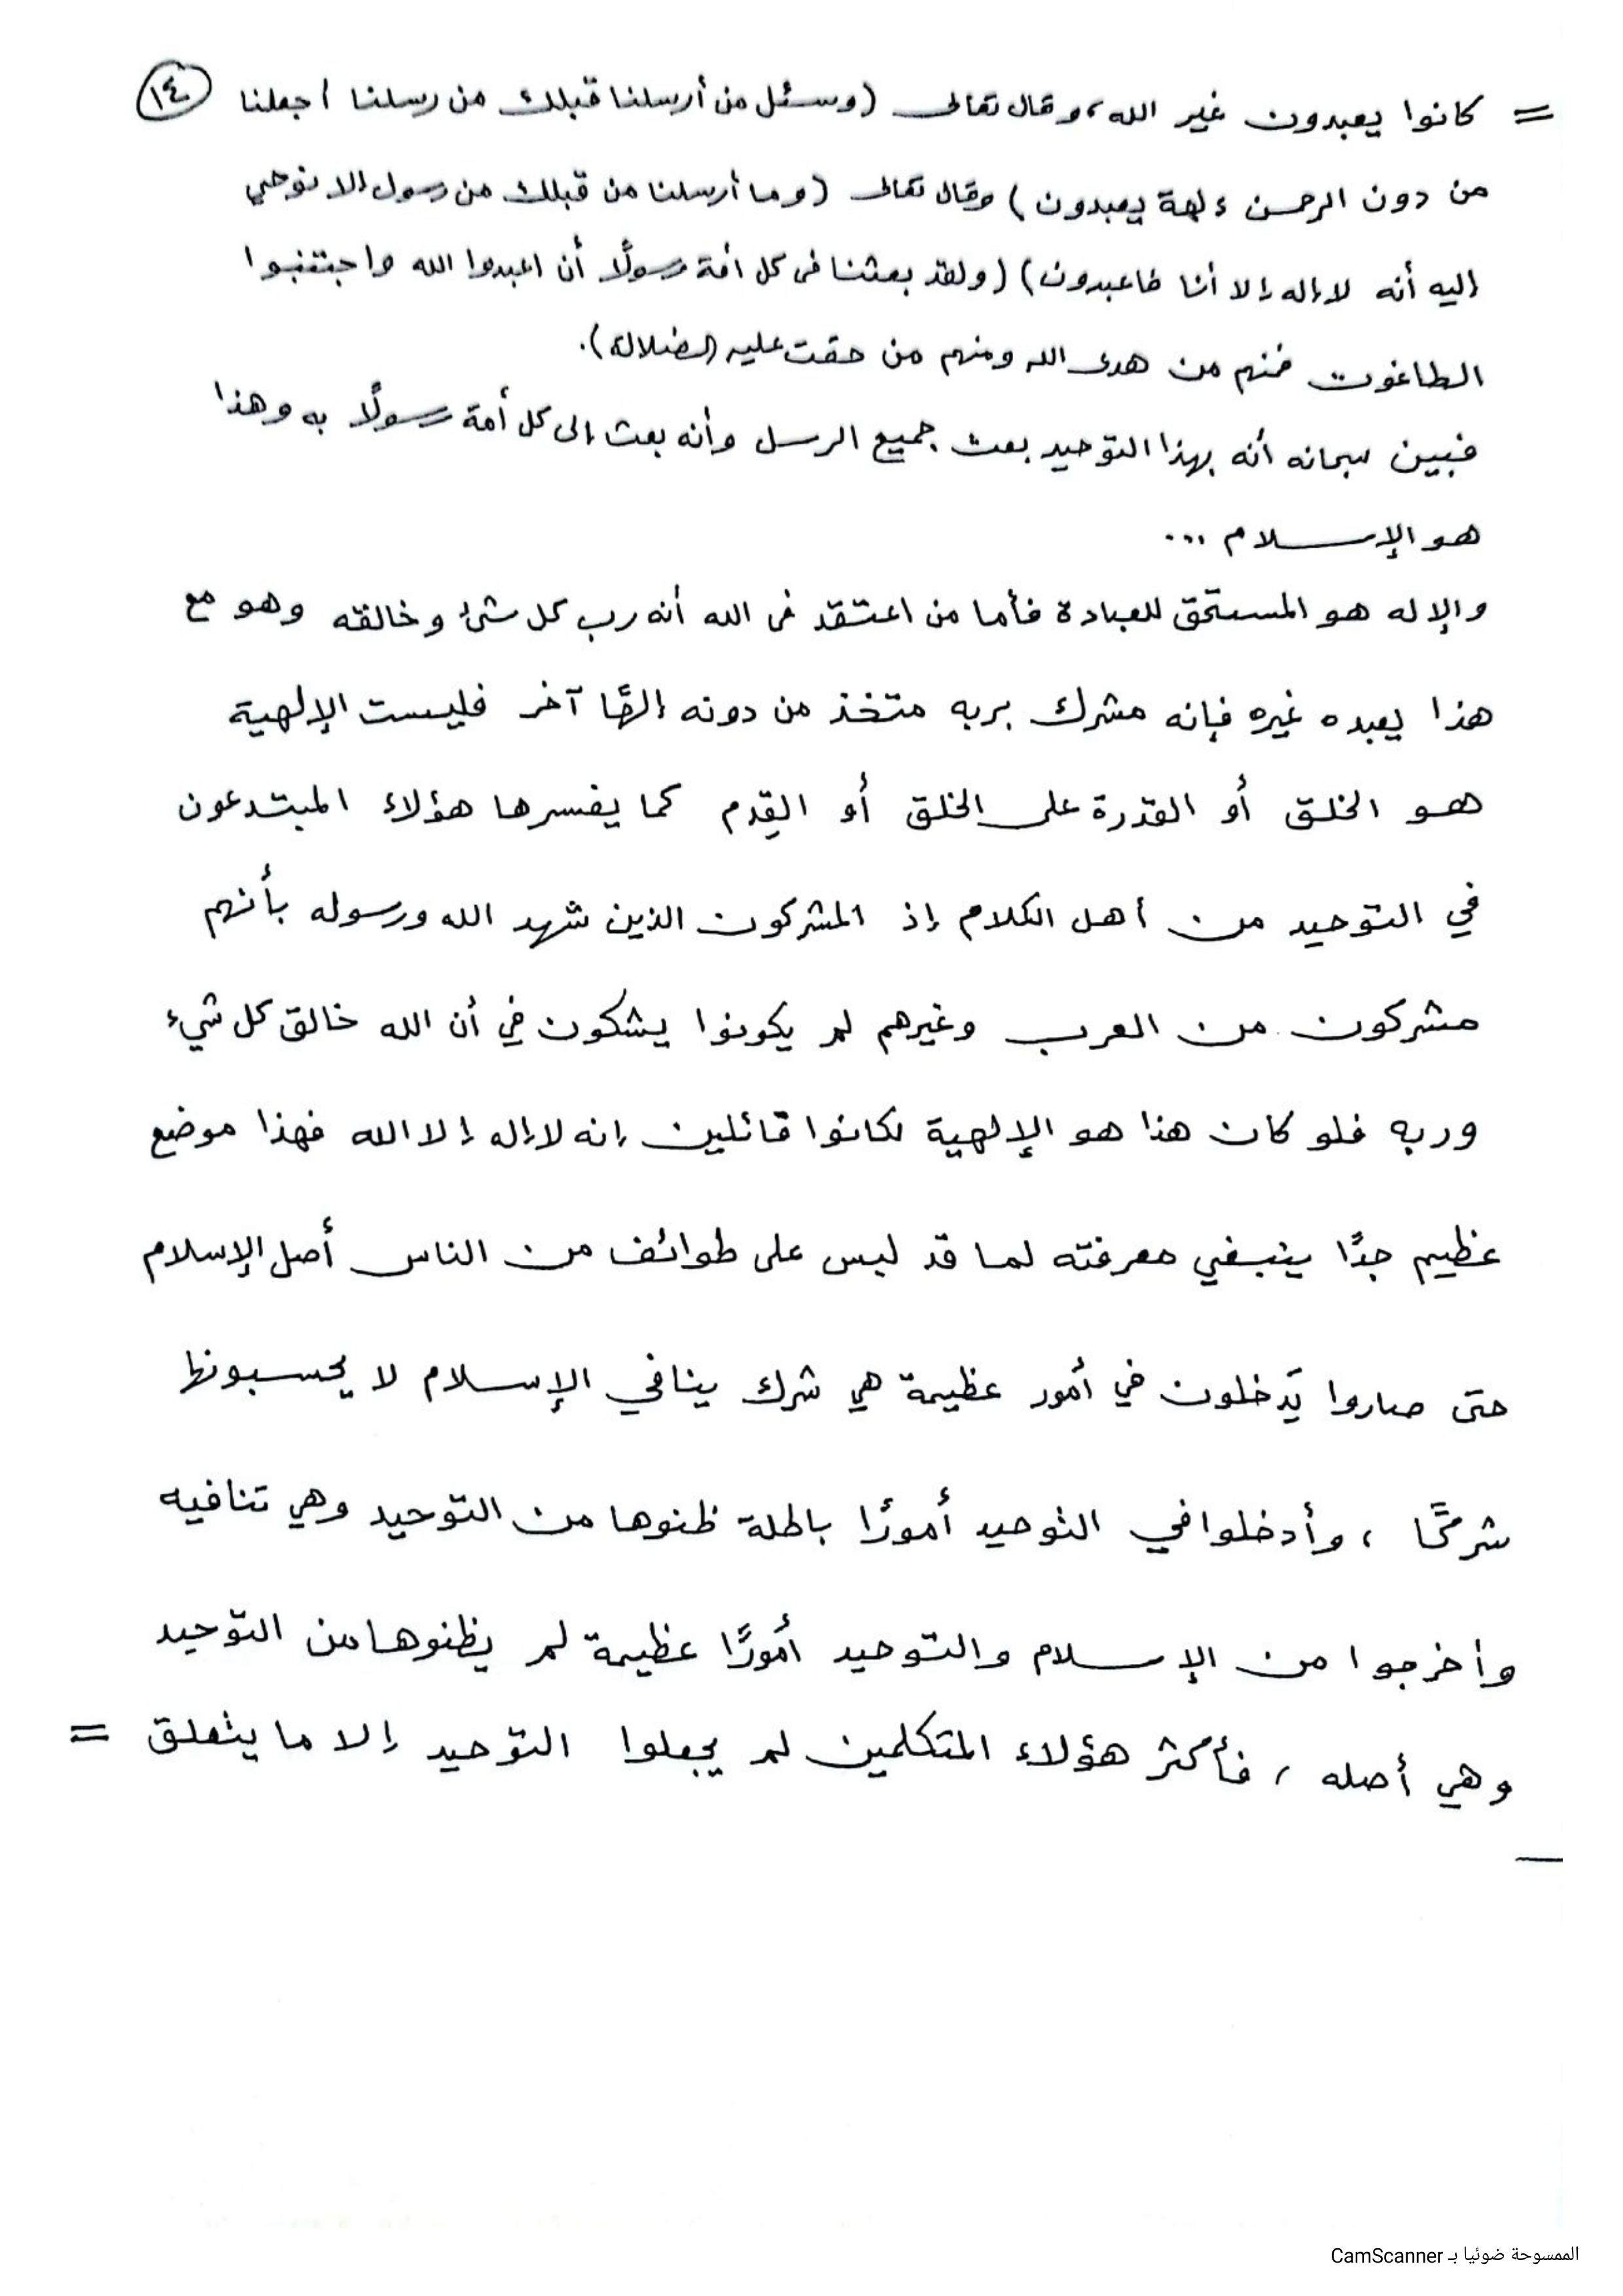 = كانوا يعبدون غير الله، وقال تعالى (وسئل من أرسلنا قبلك من رسلنا أجعلنا ١٤
من دون الرحمن ءلهة يعبدون) وقال تعالى (وما أرسلنا من قبلك من رسول إلا نوحي
إليه أنه لا إله إلا أنا فاعبدون) (ولقد بعثنا في كل أمة رسولًا أن اعبدوا الله واجتنبوا
الطاغوت فمنهم من هدى الله ومنهم من حقت عليه الضلالة).
فبين سبحانه أنه بهذا التوحيد بعث جميع الرسل وأنه بعث إلى كل أمة رسولًا به وهذا
هو الإسلام ...
والإله هو المستحق للعبادة فأما من اعتقد في الله أنه رب كل شئ وخالقه وهو مع
هذا يعبده غيره فإنه مشرك بربه متخذ من دونه إلهًا آخر فليست الإلهية
هو الخلق أو القدرة على الخلق أو القِدم كما يفسرها هؤلاء المبتدعون
في التوحيد من أهل الكلام إذ المشركون الذين شهد الله ورسوله بأنهم
مشركون من العرب وغيرهم لم يكونوا يشكون في أن الله خالق كل شيء
وربه فلو كان هذا هو الإلهية لكانوا قائلين إنه لا إله إلا الله فهذا موضع
عظيم جدًا ينبغي معرفته لما قد لبس على طوائف من الناس أصل الإسلام
حتى صاروا يَدخلون في أمور عظيمة هي شرك ينافي الإسلام لا يحسبونها
شركًا ، وأدخلوا في التوحيد أمورًا باطلة ظنوها من التوحيد وهي تنافيه
وأخرجوا من الإسلام والتوحيد أمورًا عظيمة لم يظنوها من التوحيد
وهي أصله ، فأكثر هؤلاء المتكلمين لم يجعلوا التوحيد إلا ما يتعلق =
الممسوحة ضوئيا بـ CamScanner